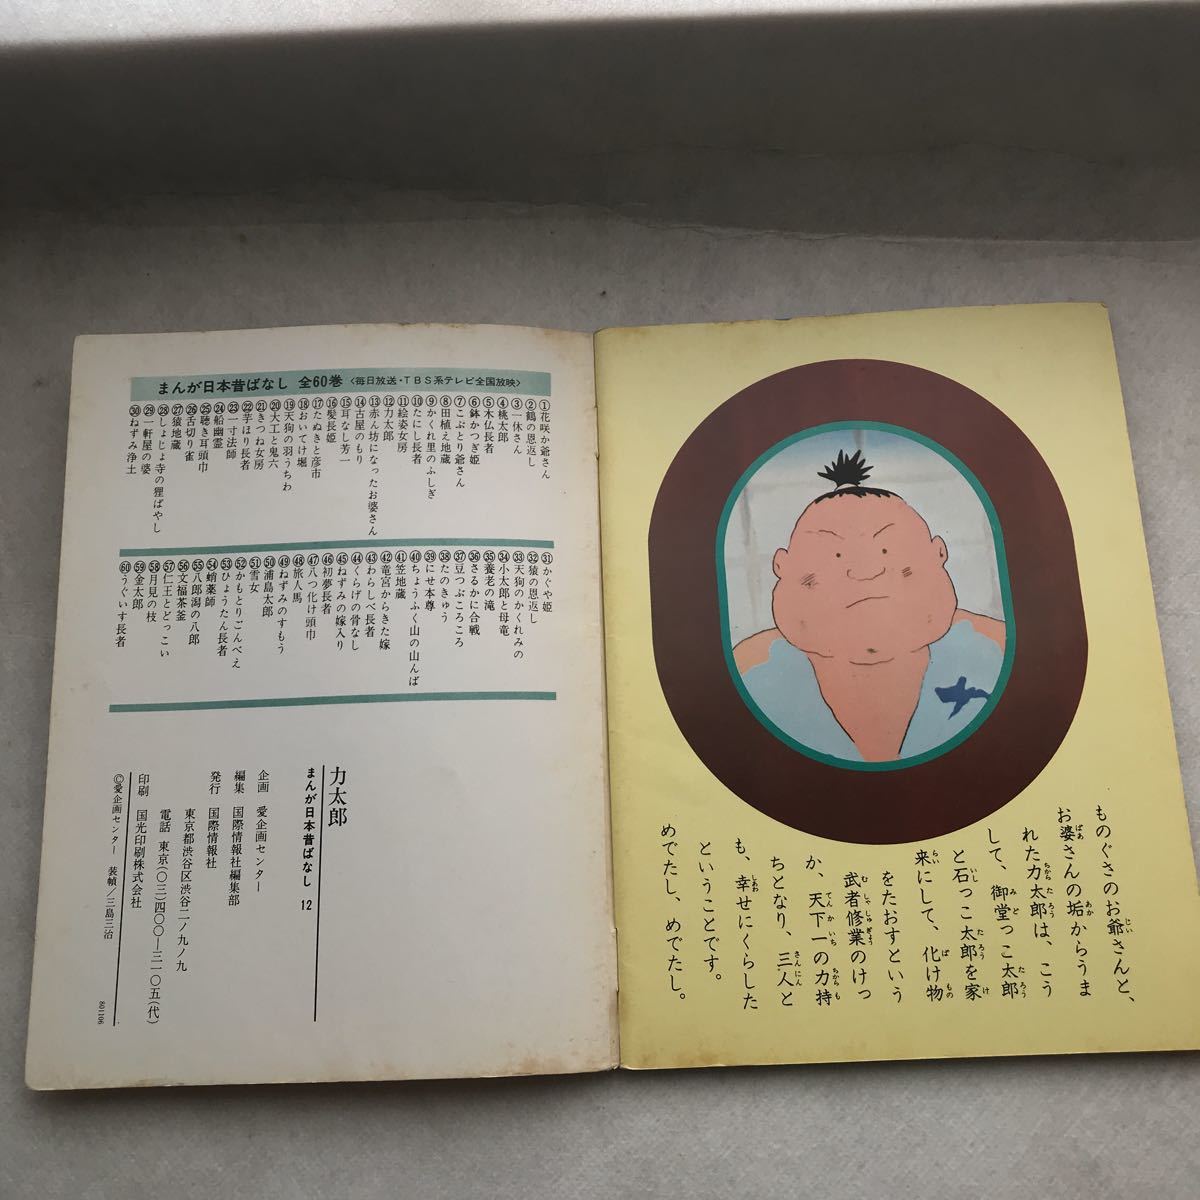 ものぐさのお爺さんと、
お婆さんの垢からうま
れた力太郎は、こう
して、御堂っこ太郎
と石っこ太郎を家
来にして、化け物
をたおすという
武者修業のけっ
か、天下一の力持
ちとなり、三人と
も、幸せにくらした
ということです。
めでたし、めでたし。
まんが日本昔ばなし 全60巻 〈毎日放送・TBS系テレビ全国放映〉
①花咲か爺さん
②鶴の恩返し
③一休さん
④桃太郎
⑤木仏長者
⑥鉢かつぎ姫
⑦こぶとり爺さん
⑧田植え地蔵
⑨かくれ里のふしぎ
⑩たにし長者
⑪絵姿女房
⑫力太郎
⑬赤ん坊になったお婆さん
⑭古屋のもり
⑮耳なし芳一
⑯髪長姫
⑰たぬきと彦市
⑱おいてけ堀
⑲天狗の羽うちわ
⑳大工と鬼六
㉑きつね女房
㉒芋ほり長者
㉓一寸法師
㉔船幽霊
㉕聴き耳頭巾
㉖舌切り雀
㉗猿地蔵
㉘しょじょ寺の狸ばやし
㉙一軒屋の婆
㉚ねずみ浄土
㉛かぐや姫
㉜猿の恩返し
㉝天狗のかくれみの
㉞小太郎と母竜
㉟養老の滝
㊱さるかに合戦
㊲豆つぶころころ
㊳たのきゅう
㊴にせ本尊
㊵ちょうふく山の山んば
㊶笠地蔵
㊷竜宮からきた嫁
㊸わらしべ長者
㊹くらげの骨なし
㊺ねずみの嫁入り
㊻初夢長者
㊼八つ化け頭巾
㊽旅人馬
㊾ねずみのすもう
㊿浦島太郎
51雪女
52かもとりごんべえ
53ひょうたん長者
54蛸薬師
55八郎潟の八郎
56文福茶釜
57仁王とどっこい
58月見の枝
59金太郎
60うぐいす長者
力太郎
まんが日本昔ばなし 12
企画 愛企画センター
編集 国際情報社編集部
発行 国際情報社
東京都渋谷区渋谷二ノ九ノ九
電話 東京(〇三)四〇〇―三一〇五(代)
印刷 国光印刷株式会社
©愛企画センター 装幀/三島三治
801106